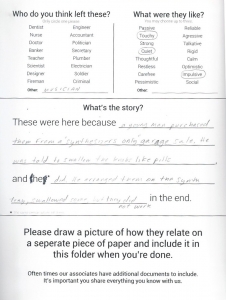 Who do you think left these?
What were they like?
Dentist Engineer Passive Reliable
Nurse Accountant Touchy Agressive
Doctor Politician Strong Talkative
Banker Secretary Quiet Rigid
Teacher Plumber Thoughtful Calm
Scientist Electrician Restless Optimistic
Designer Soldier Carefree Impulsive
Fireman Criminal Pessimistic Social
Other: musician
Other:
What's the story?
These were here because a young man purchased
them from a synthesizers only garage sale, he
was told to swallow the like pills
and they did, an on the synth
they swallowed some, but they did
not work in the end.
Please draw a picture of how they relate on
a seperate piece of paper and include it in
this folder when you're done.
Often times our associates have additional documents to include.
It's important you share everything you know with us.